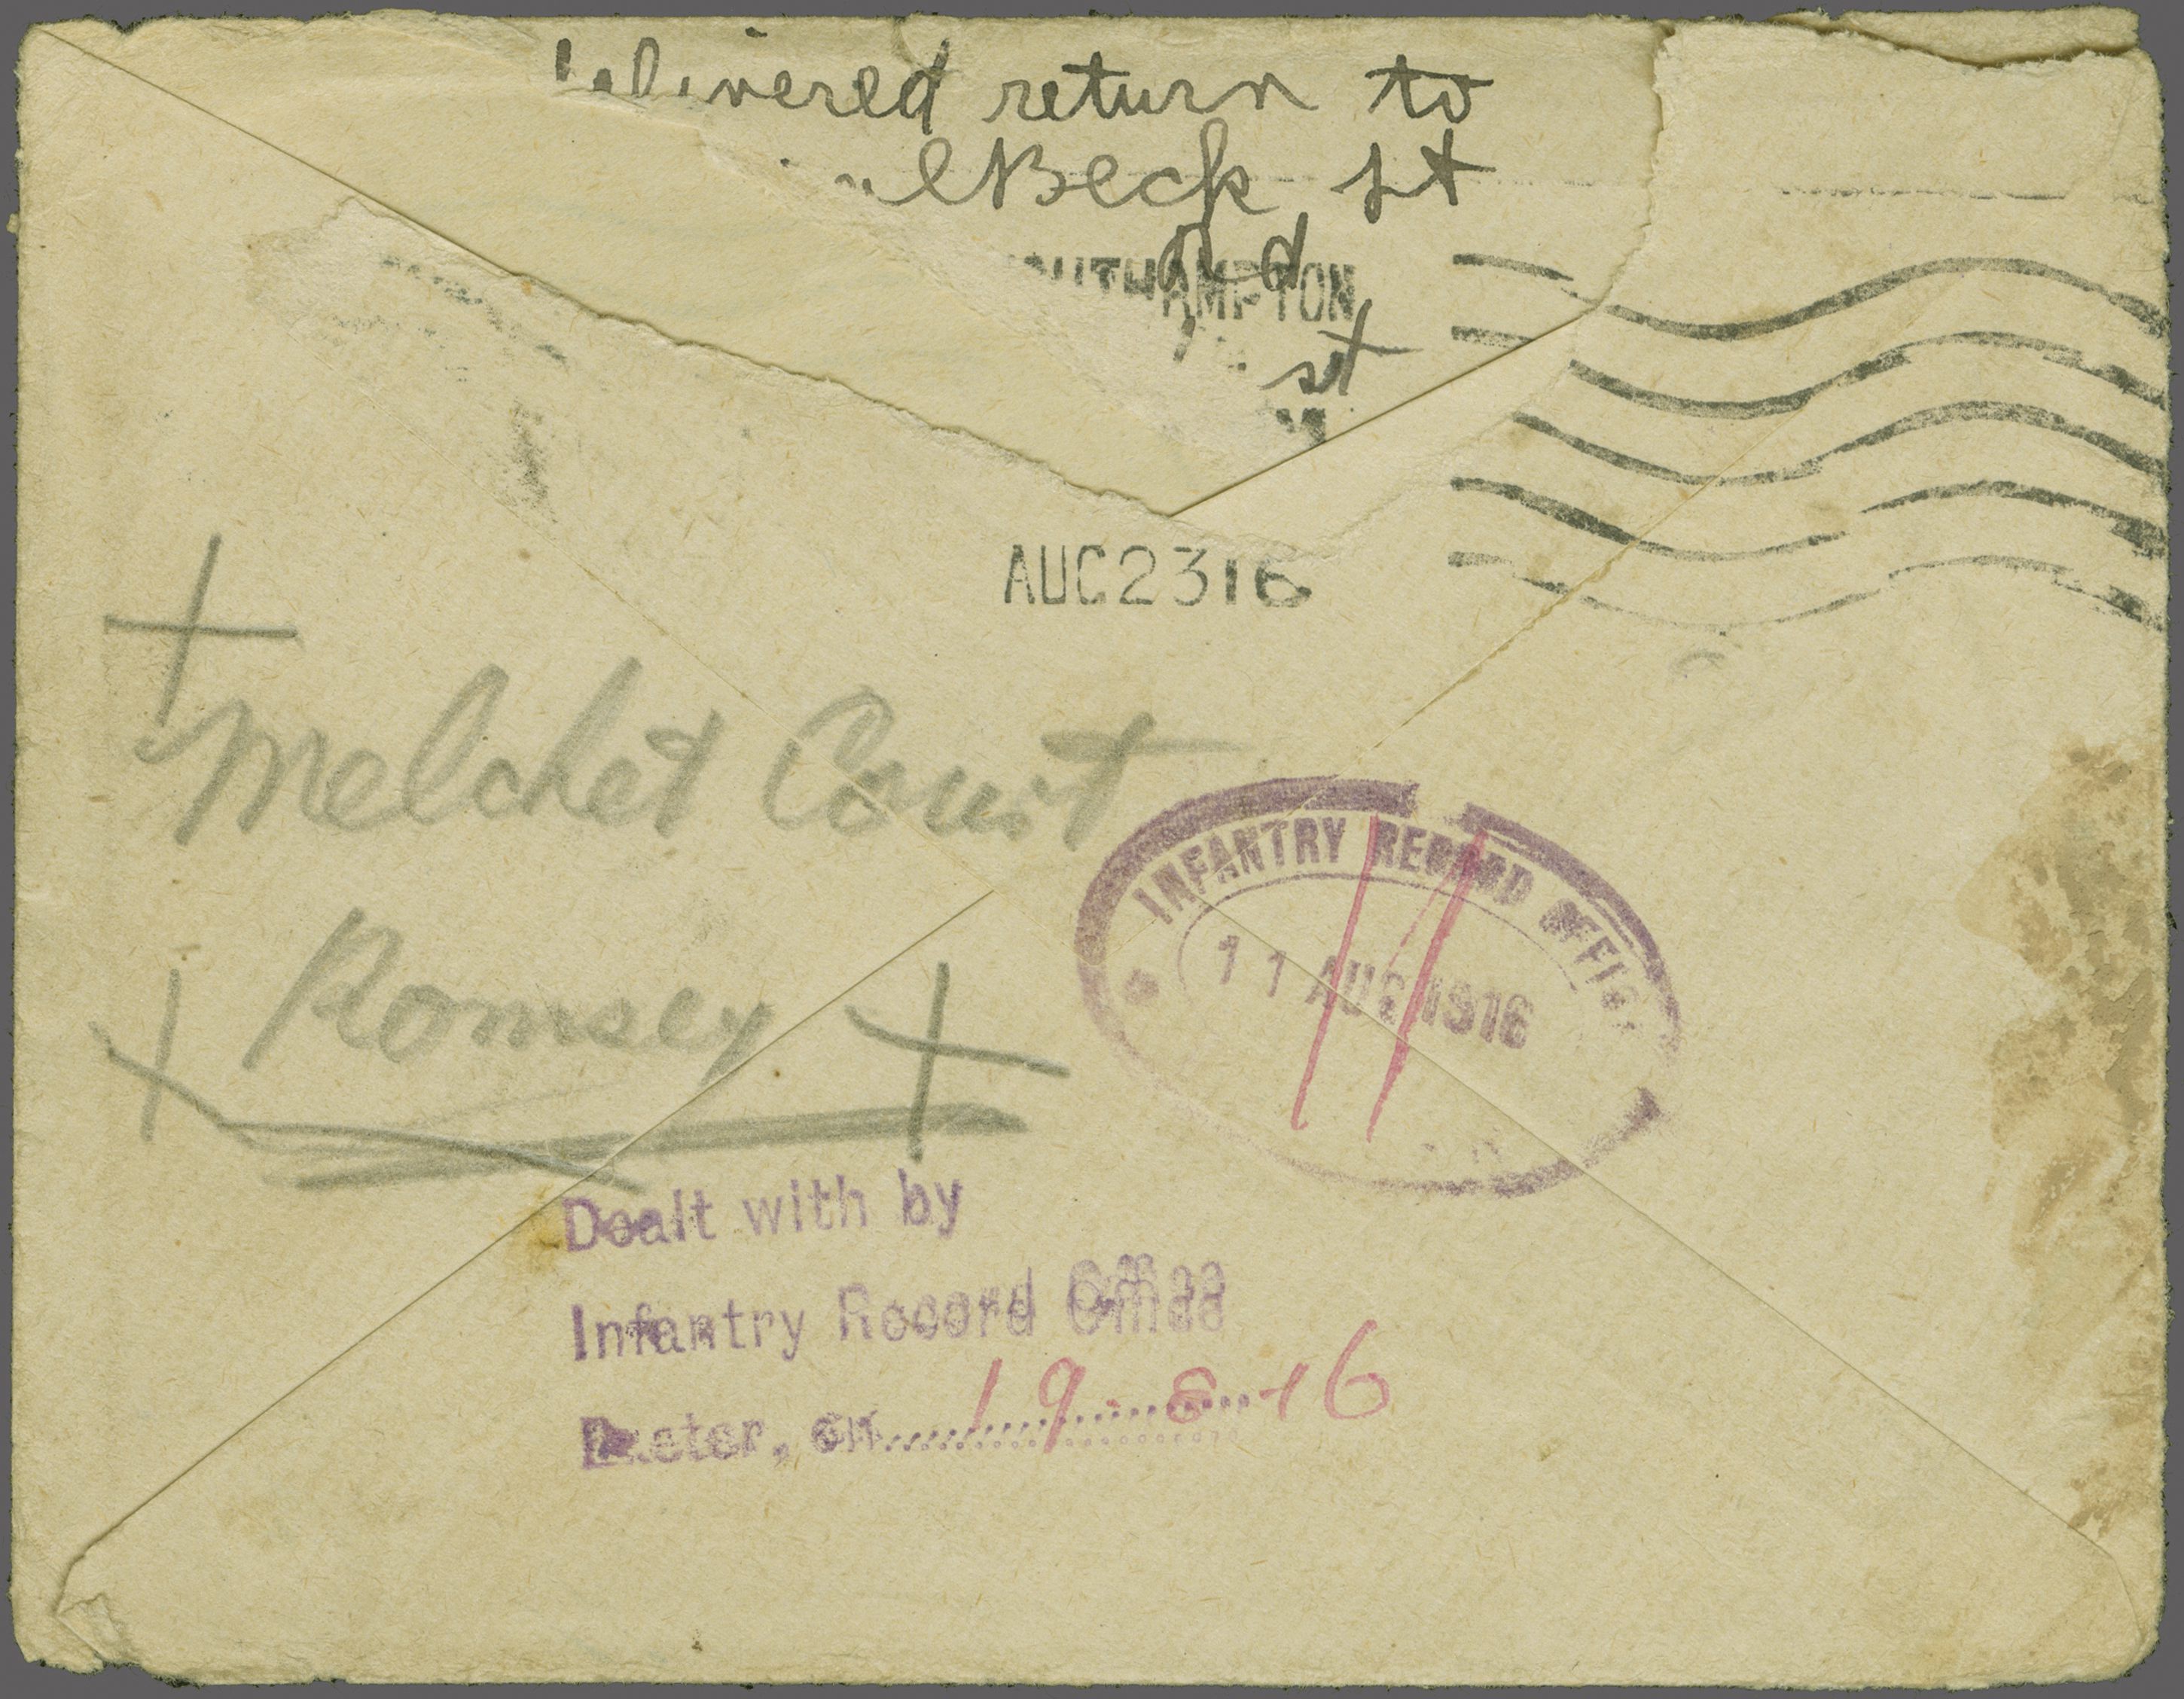 return to
Beck st
SOUTHAMPTON
st
AUG 23 16
Melchet Court
Romsey
INFANTRY RECORD OFFICE
11 AUG 1916
11
Dealt with by
Infantry Record Office
Exeter, on 19-8-16